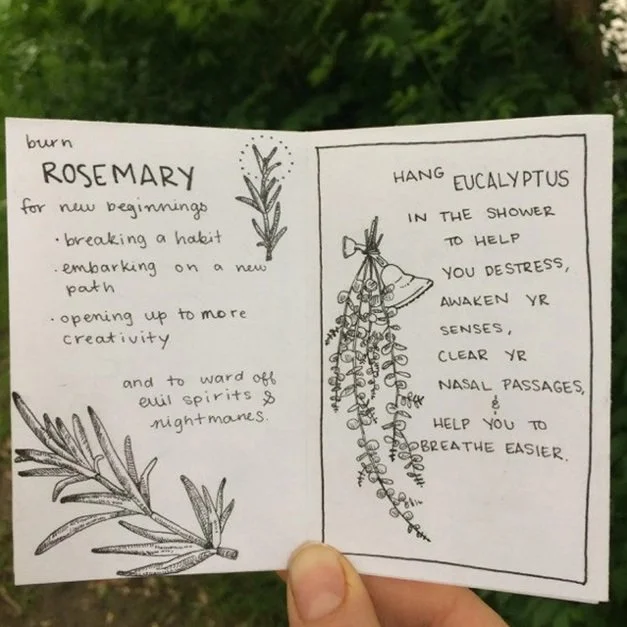 burn
ROSEMARY
for new beginnings
· breaking a habit
· embarking on a new
path
· opening up to more
creativity
and to ward off
evil spirits &
nightmares.
HANG EUCALYPTUS
IN THE SHOWER
TO HELP
YOU DESTRESS,
AWAKEN YR
SENSES,
CLEAR YR
NASAL PASSAGES,
&
HELP YOU TO
BREATHE EASIER.